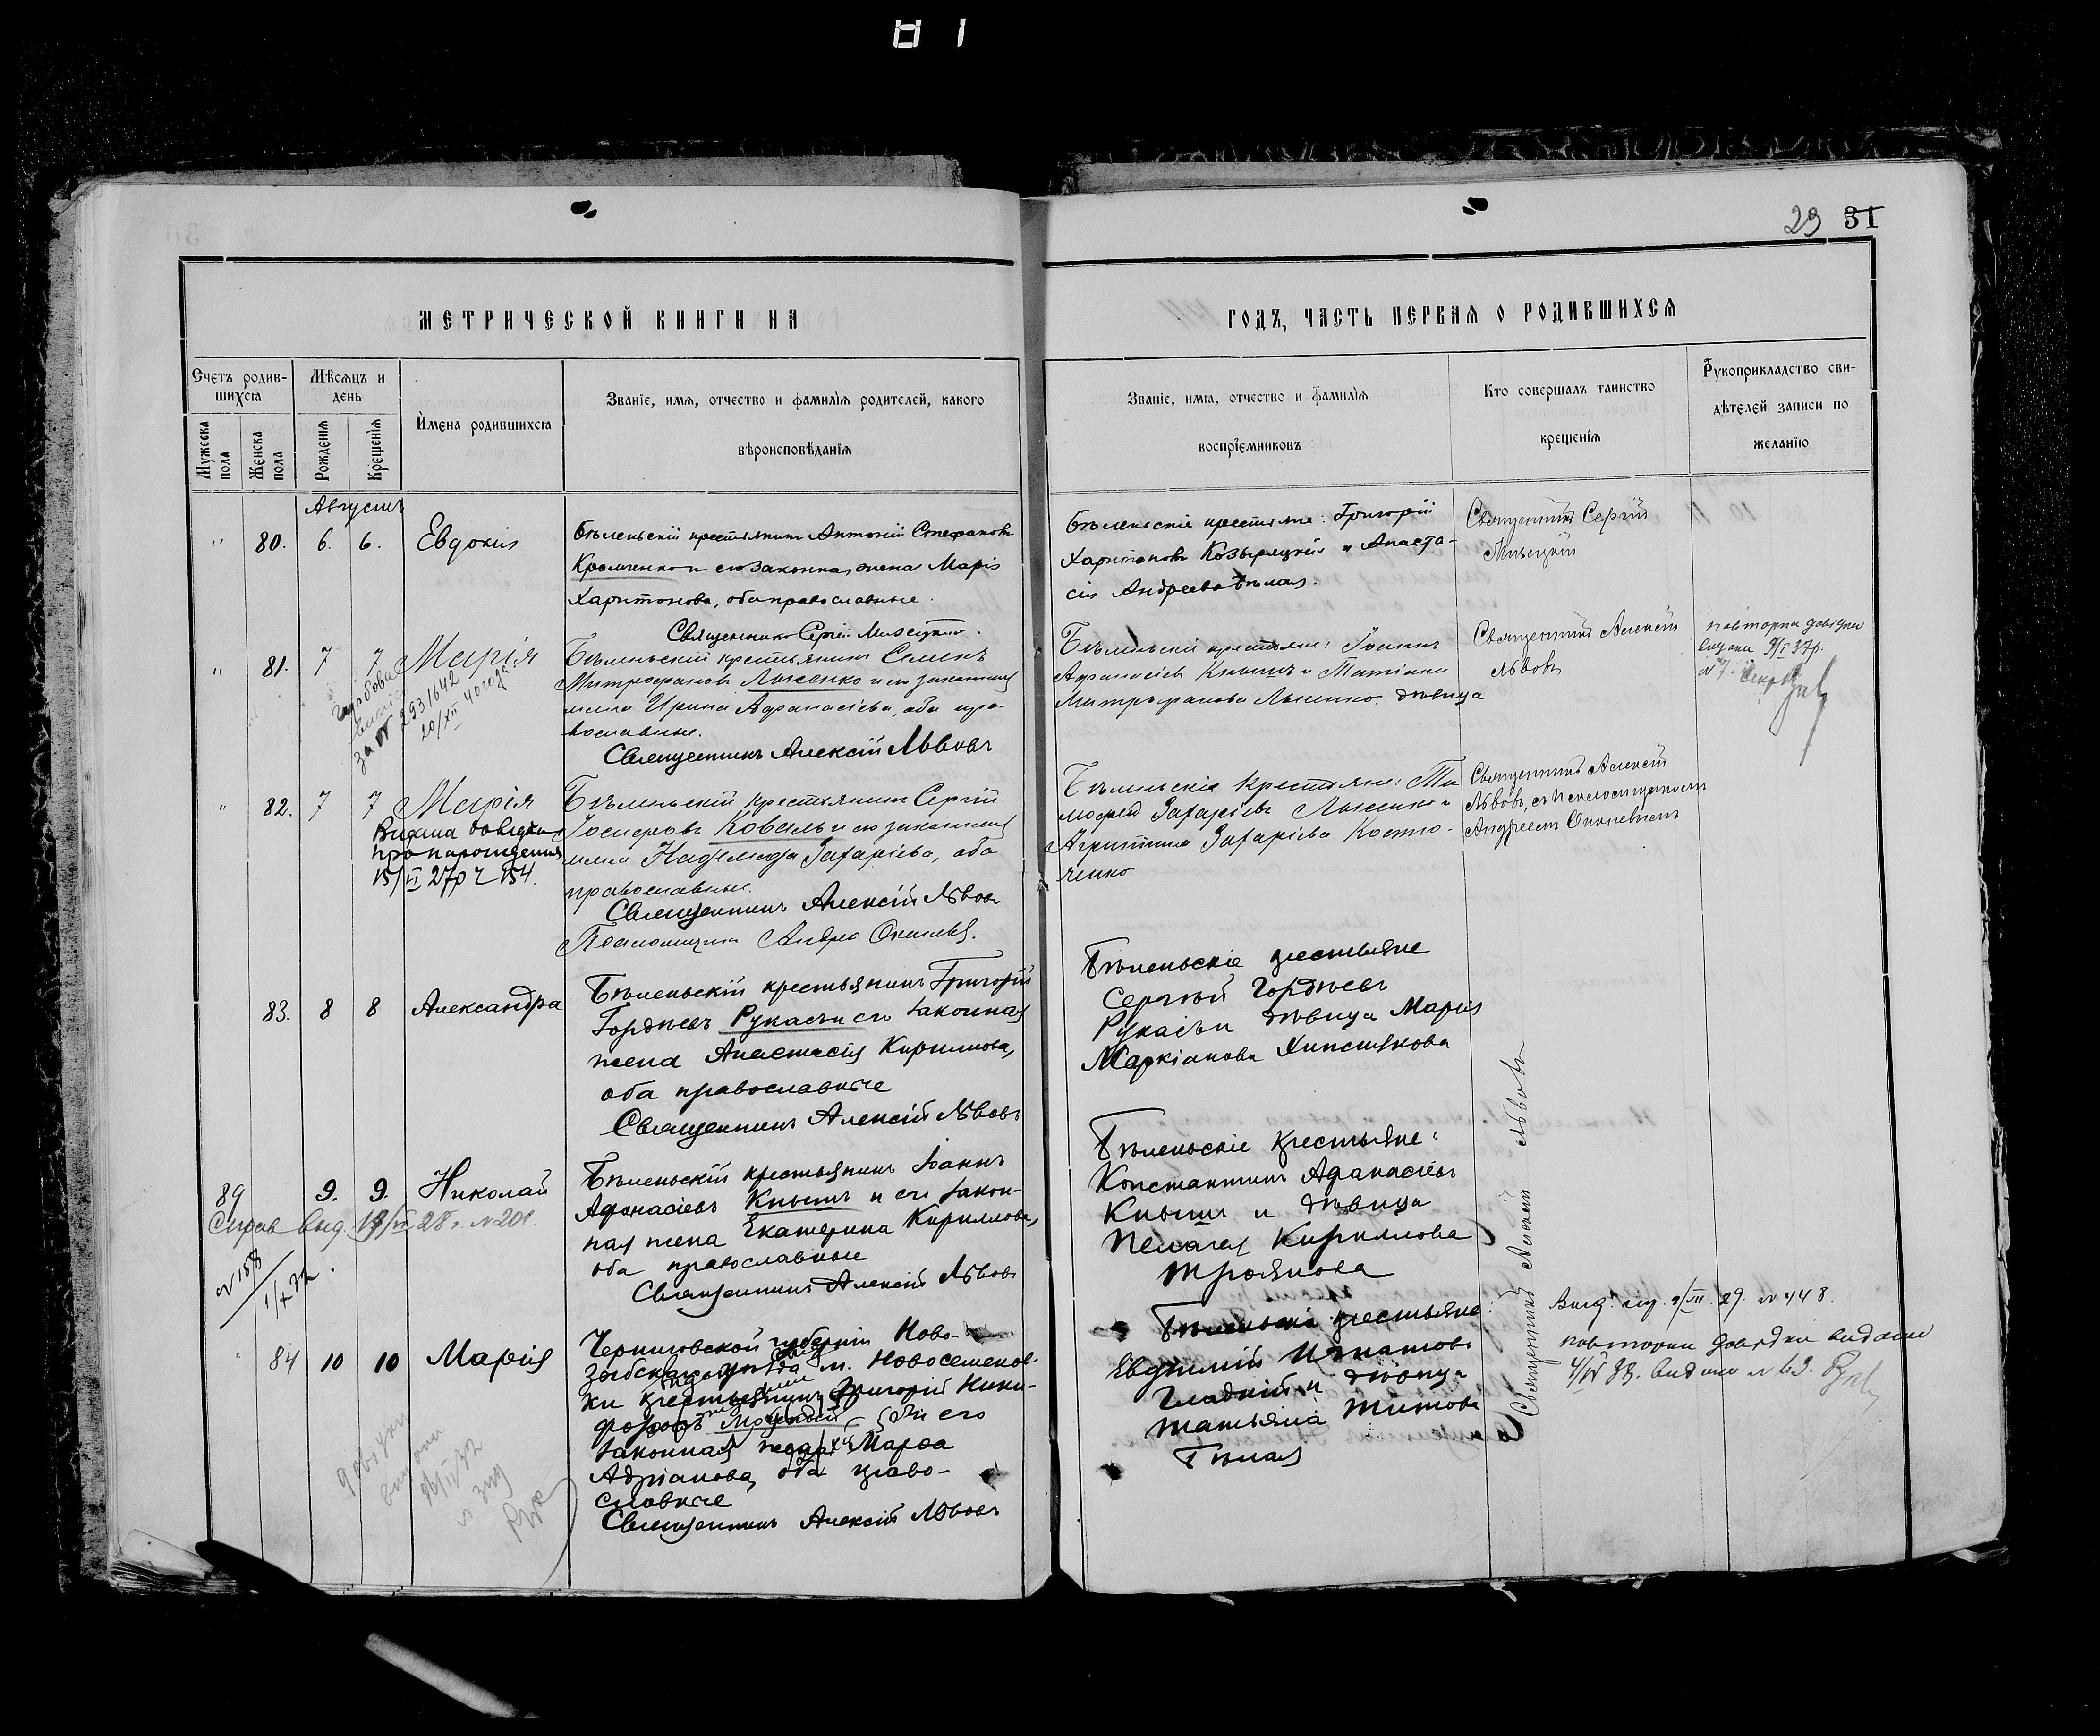 29 31
МЕТРИЧЕСКОЙ КНИГИ НА
ГОДЪ, ЧАСТЬ ПЕРВАЯ О РОДИВШИХСЯ
Счетъ родив-
шихся
Мужеска
пола
Женска
пола
Мѣсяцъ и
день
Рожденія
Крещенія
Имена родившихся
Званіе, имя, отчество и фамилія родителей, какого
вѣроисповѣданія
Званіе, имя, отчество и фамилія
воспріемниковъ
Кто совершалъ таинство
крещенія
Рукоприкладство сви-
дѣтелей записи по
желанію
Августъ
" 80. 6. 6. Евдокія
Бѣленьскій крестьянинъ Антоній Стефановъ
Кромченко и его законная жена Марія
Харитонова, оба православные.
Священникъ Сергій
Бѣленьскіе крестьяне: Григорій
Харитоновъ Козырецкій и Анаста-
сія Андреева Бѣлая.
Священникъ Сергій
" 81. 7 7 Марія
гербовая
за № 2931642
20/XII 40 года
Бѣленьскій крестьянинъ Семенъ
Митрофановъ Лысенко и его законная
жена Ирина Афанасіева, оба пра-
вославные.
Священникъ Алексій Львовъ
Бѣленьскіе крестьяне: Іоаннъ
Афанасіевъ Кнышъ и Татіана
Митрофанова Лысенко девица
Священникъ Алексій
Львовъ
повторна довідка
видана 9/I 37р.
№ 7.
" 82. 7 7 Марія
Видана довідка
про народження
15/VI 27р Ч 154.
Бѣленьскій крестьянинъ Сергій
Іосифовъ Коваль и его законная
жена Надежда Захаріева, оба
православные.
Священникъ Алексій Львовъ
Псаломщикъ Андрей
Бѣленьскіе крестьяне: Ти-
мофей Захаріевъ Лысенко и
Агриппина Захаріева Костю-
ченко
Священникъ Алексій
Львовъ, съ псаломщикомъ
Андреемъ
83. 8 8 Александра
Бѣленьскій крестьянинъ Григорій
Гордѣевъ Рукасъ и его законная
жена Анастасія Кириллова,
оба православные
Священникъ Алексій Львовъ
Бѣленьскіе крестьяне
Сергѣй Гордѣевъ
Рукасъ и дѣвица Марія
Маркіанова
89 9. 9. Николай
Справ выд. 13/VI 28 г. № 201.
№ 158
1/X 32.
Бѣленьскій крестьянинъ Іоаннъ
Афанасіевъ Кнышъ и его закон-
ная жена Екатерина Кириллова,
оба православные
Священникъ Алексій Львовъ
Бѣленьскіе крестьяне:
Константинъ Афанасіевъ
Кнышъ и дѣвица
Пелагея Кириллова
Троянова
Священникъ Алексій Львовъ
" 84 10 10 Марія
довідки
видана
Черниговской губерніи Ново-
зыбскаго уѣзда м. Новосеменов-
ки крестьянинъ Григорій Ники-
форовъ и его
законная жена Марфа
Адріанова, оба право-
славные
Священникъ Алексій Львовъ
Бѣленьскіе крестьяне:
Евфимій Игнатовъ
Гладкій и дѣвица
Татьяна Титова
Бѣлая
29. № 448.
повторни довідки видани
4/IV 33. видано № 63.